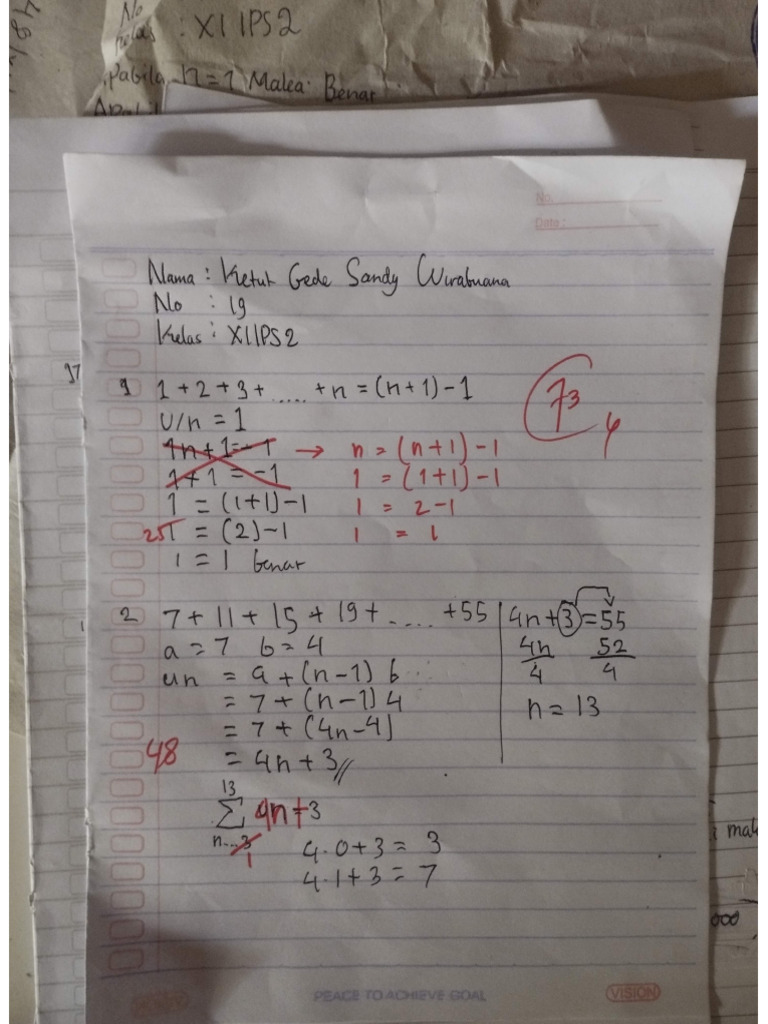 No
Kelas : XI IPS2
Pabila n=1 Maka Benar
No.
Date:
Nama : Ketut Gede Sandy Wirabuana
No : 19
Kelas : XI IPS2
1 1+2+3+.....+n=(n+1)-1
73
4
U/n = 1
4n+1=-1 → n = (n+1)-1
1+1=-1 1 = (1+1)-1
1 = (1+1)-1 1 = 2-1
25 1 = (2)-1 1 = 1
1 = 1 benar
2 7+11+15+19+.....+55
a = 7 b = 4
un = a+(n-1) b
= 7+(n-1)4
= 7+(4n-4)
48 = 4n+3//
4n+3=55
4n 52
4 4
n = 13
13
Σ 4n+3
n...3
1
4.0+3 = 3
4.1+3 = 7
PEACE TO ACHIEVE GOAL
VISION